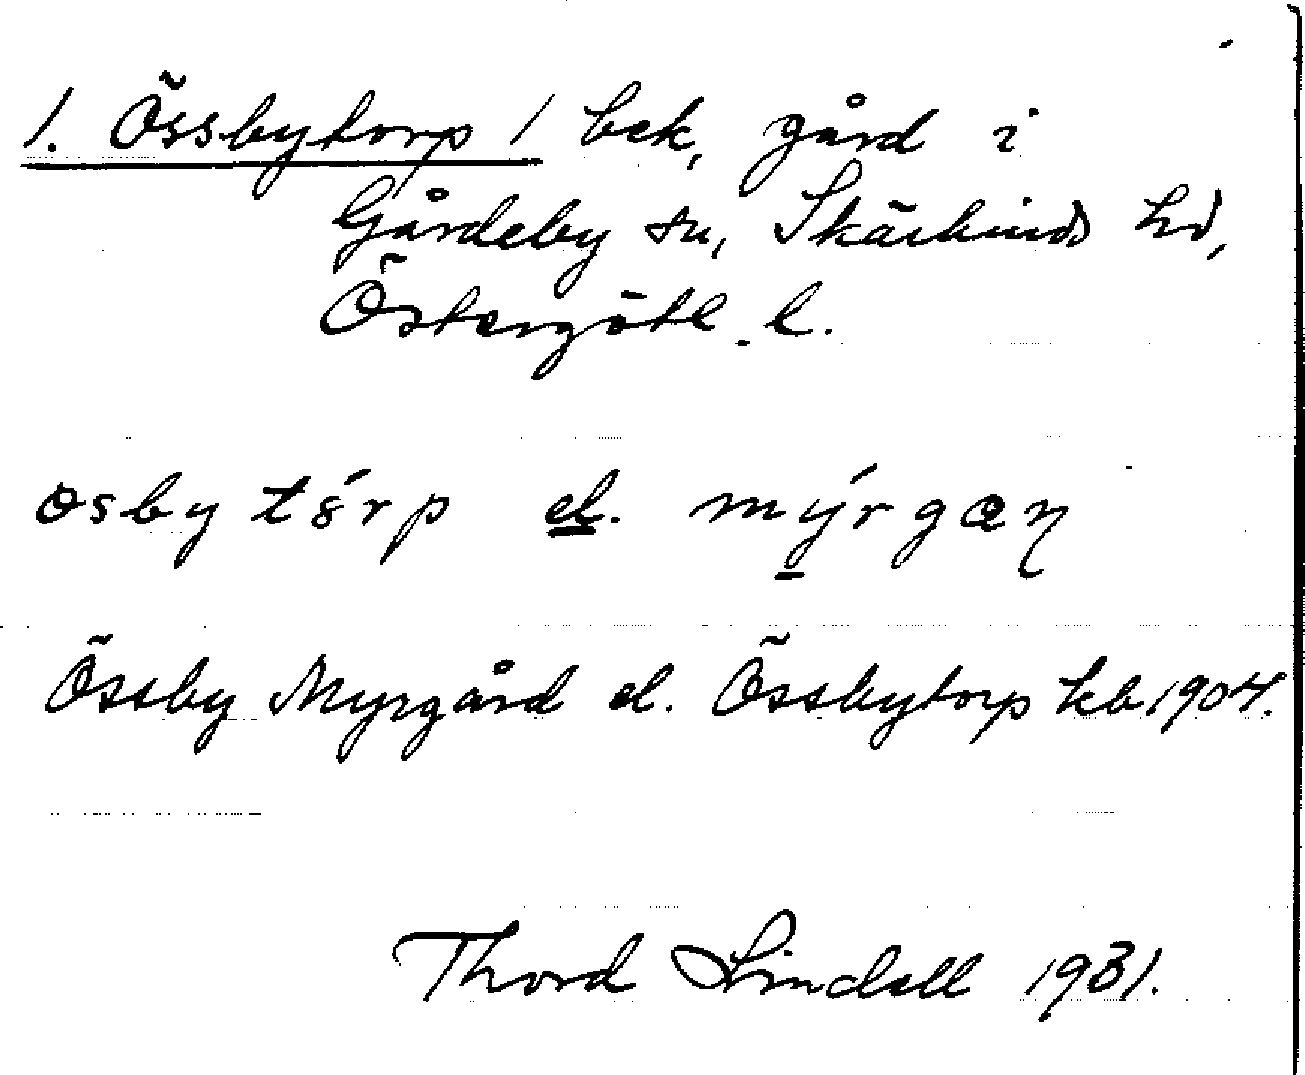 1. Össbytorp / bek. gård i
Gårdeby sn, Skärkinds hd,
Östergötl. l.
osby tórp el. mýrgan
Össby Myrgård el. Össbytorp kb 1904.
Thord Lindell 1931.